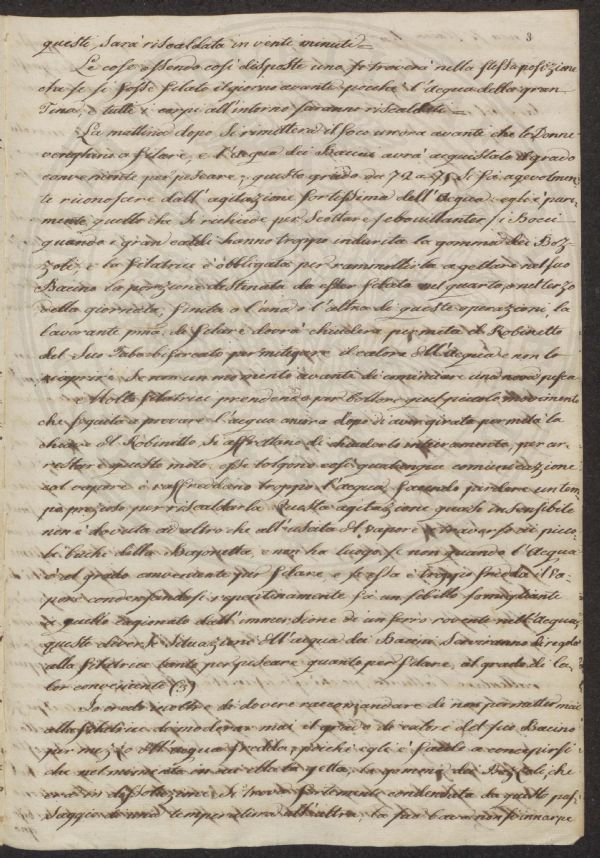 3
questi, sarà riscaldata in venti minuti =
Le cose essendo così disposte uno si troverà nella stessa posizione
che se si fosse filato il giorno avante poichè l'acqua della gran
Tina, e tutti i corpi all'interno saranno riscaldati =
La mattina dopo si rimetterà il foco un'ora avante che le Donne
venghino a filare, e l'acqua dei Bacini avrà acquistato il grado
conveniente per pescare; questo grado dei 72 a 75 si fa agevolmen-
te riconoscere dall'agitazione fortissima dell'acqua: egli è pari-
mente quello che si richiede per Scottare, ebouillanter, si Bocci
quando i gran caldi hanno troppo indurita la gomma dei Boz-
zoli, e la filatrice è obbligata per rammollirla a gettare nel suo
Bacino la porzione destinata da esser filata nel quarto, o nel terzo
della giornata, finita o l'una o l'altra di queste operazioni, la
lavorante pma. di filare dovrà chiudere per metà il Robinetto
del suo Tubo biforcato per mitigare il calore dell'acqua e non lo
riaprire, se non un momento avanti di cominciare una nova pesca
Molte filatrici prendendo per bollore quel piccolo movimento
che seguita a provare l'acqua ancora dopo di aver girato per metà la
chiave del Robinetto, si affrettano di chiuderlo intieramente, per ar-
restare questo moto, esse tolgono così qualunque comunicazione
col vapore e raffreddano troppo l'acqua, facendo perdere un tem-
po prezioso per riscaldarla. Questa agitazione quasi insensibile
non è dovuta ad altro che all'uscita del vapore a traverso ai picco-
li buchi della Bajonetta, e non ha luogo, se non quando l'Acqua
è al grado conveniente per filare, e se essa è troppo fredda il Va-
pore condensandosi repentinamente fa un sibillo somigliante
a quello cagionato dall'immersione di un ferro rovente nell'Acqua,
queste diverse situazioni dell'acqua dei Bacini serviranno di regola
alla filatrice tanto per pescare quanto per filare, al grado di ca-
lor conveniente (3)
Io credo inoltre di dovere raccomandare di non permetter mai
alla filatrice di moderar mai il grado di calore del suo Bacino
per mezzo dell'acqua fredda, poichè egli è facile a concepirsi
che nel momento in cui ella la getta, la gomma dei Bozzoli, che
era in dissoluzione si trova fortemente condensata da questo pas-
saggio di una temperatura all'altra, la sua bava non si innaspe